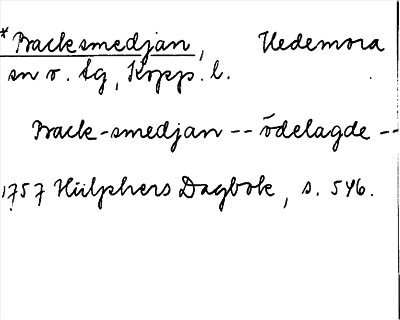 *Backsmedjan, Hedemora
sn o. tg, Kopp. l.
Back-smedjan -- ödelagde --
1757 Hülphers Dagbok, s. 546.